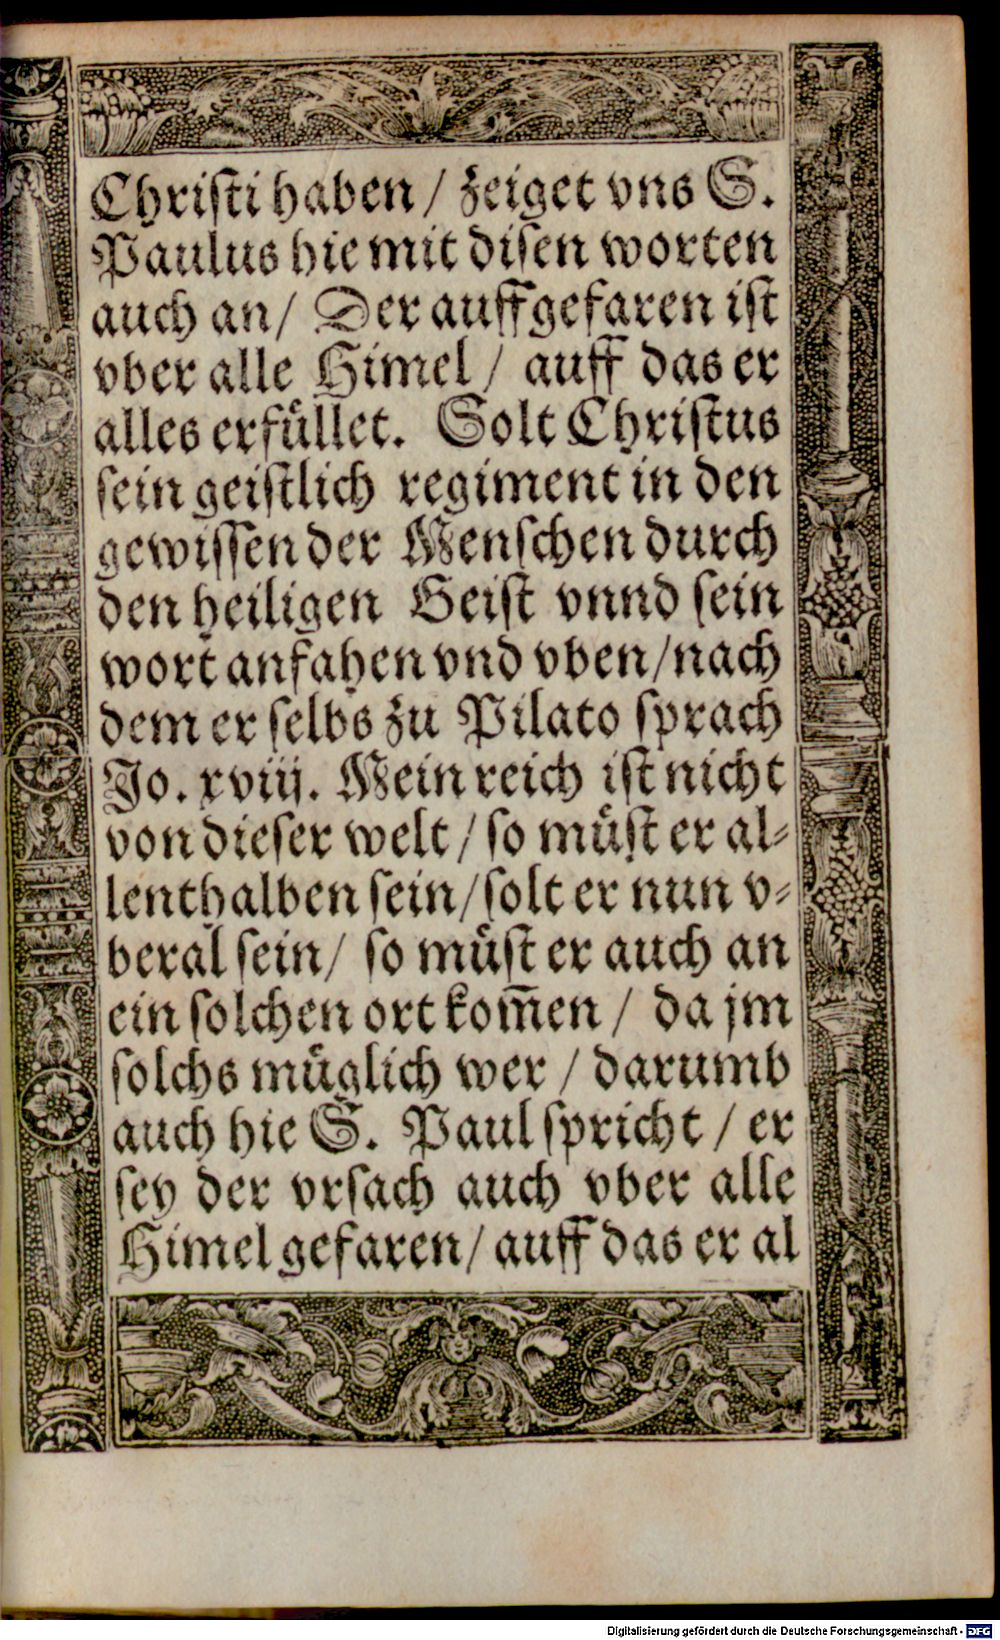 Chriſti haben / zeiget vns S.
Paulus hie mit diſen worten
auch an / Der auffgefaren iſt
vber alle Himel / auff das er
alles erfuͤllet. Solt Chriſtus
ſein geiſtlich regiment in den
gewiſſen der Menſchen durch
den heiligen Geiſt vnnd ſein
wort anfahen vnd vben / nach
dem er ſelbs zu Pilato ſprach
Jo. xviij. Mein reich iſt nicht
von dieſer welt / ſo muͤſt er al⸗
lenthalben ſein / ſolt er nun v⸗
beral ſein / ſo muͤſt er auch an
ein ſolchen ort kom̄en / da jm
ſolchs muͤglich wer / darumb
auch hie S. Paul ſpricht / er
ſey der vrſach auch vber alle
Himel gefaren / auff das er al
Digitalisierung gefördert durch die Deutsche Forschungsgemeinschaft - DFG